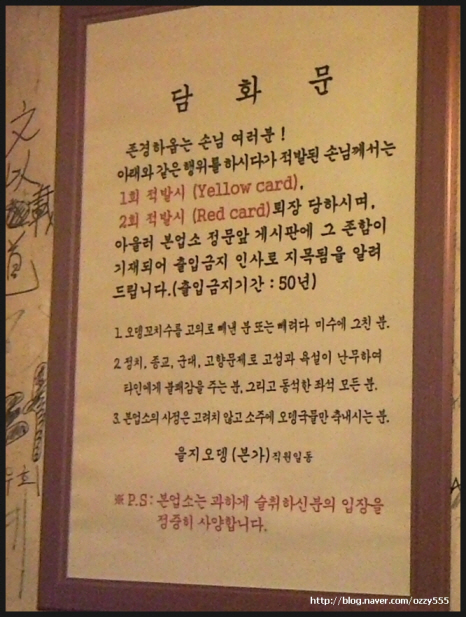 담 화 문
존경하옵는 손님 여러분 !
아래와 같은 행위를 하시다가 적발된 손님께서는
1회 적발시 (Yellow card),
2회 적발시 (Red card)퇴장 당하시며,
아울러 본업소 정문앞 게시판에 그 존함이
기재되어 출입금지 인사로 지목됨을 알려
드립니다.(출입금지기간 : 50년)
1. 오뎅꼬치수를 고의로 빼낸 분 또는 빼려다 미수에 그친 분.
2. 정치, 종교, 군대, 고향문제로 고성과 욕설이 난무하여
타인에게 불쾌감을 주는 분, 그리고 동석한 좌석 모든 분.
3. 본업소의 사정은 고려치 않고 소주에 오뎅국물만 축내시는 분.
을지오뎅 (본가) 직원일동
※ P.S: 본업소는 과하게 술취하신분의 입장을
정중히 사양합니다.
文以
載
http://blog.naver.com/ozzy555